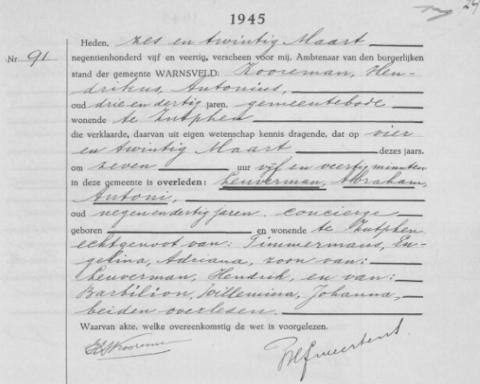 1945
29
Heden, zes en twintig Maart
Nr. 91 negentienhonderd vijf en veertig, verscheen voor mij, Ambtenaar van den burgerlijken
stand der gemeente WARNSVELD: Kooreman, Hen-
drikus, Antonius,
oud drie en dertig jaren, gemeentebode
wonende te Zutphen
die verklaarde, daarvan uit eigen wetenschap kennis dragende, dat op vier
en twintig Maart dezes jaars.
om zeven uur vijf en veertig minuten
in deze gemeente is overleden: Leuverman, Abraham,
Antoni,
oud negen en dertig jaren. concierge
geboren en wonende te Zutphen
echtgenoot van: Timmermans, En-
gelina, Adriana, zoon van:
Leuverman, Hendrik, en van:
Barbilion, Willemina, Johanna,
beiden overleden.
Waarvan akte, welke overeenkomstig de wet is voorgelezen.